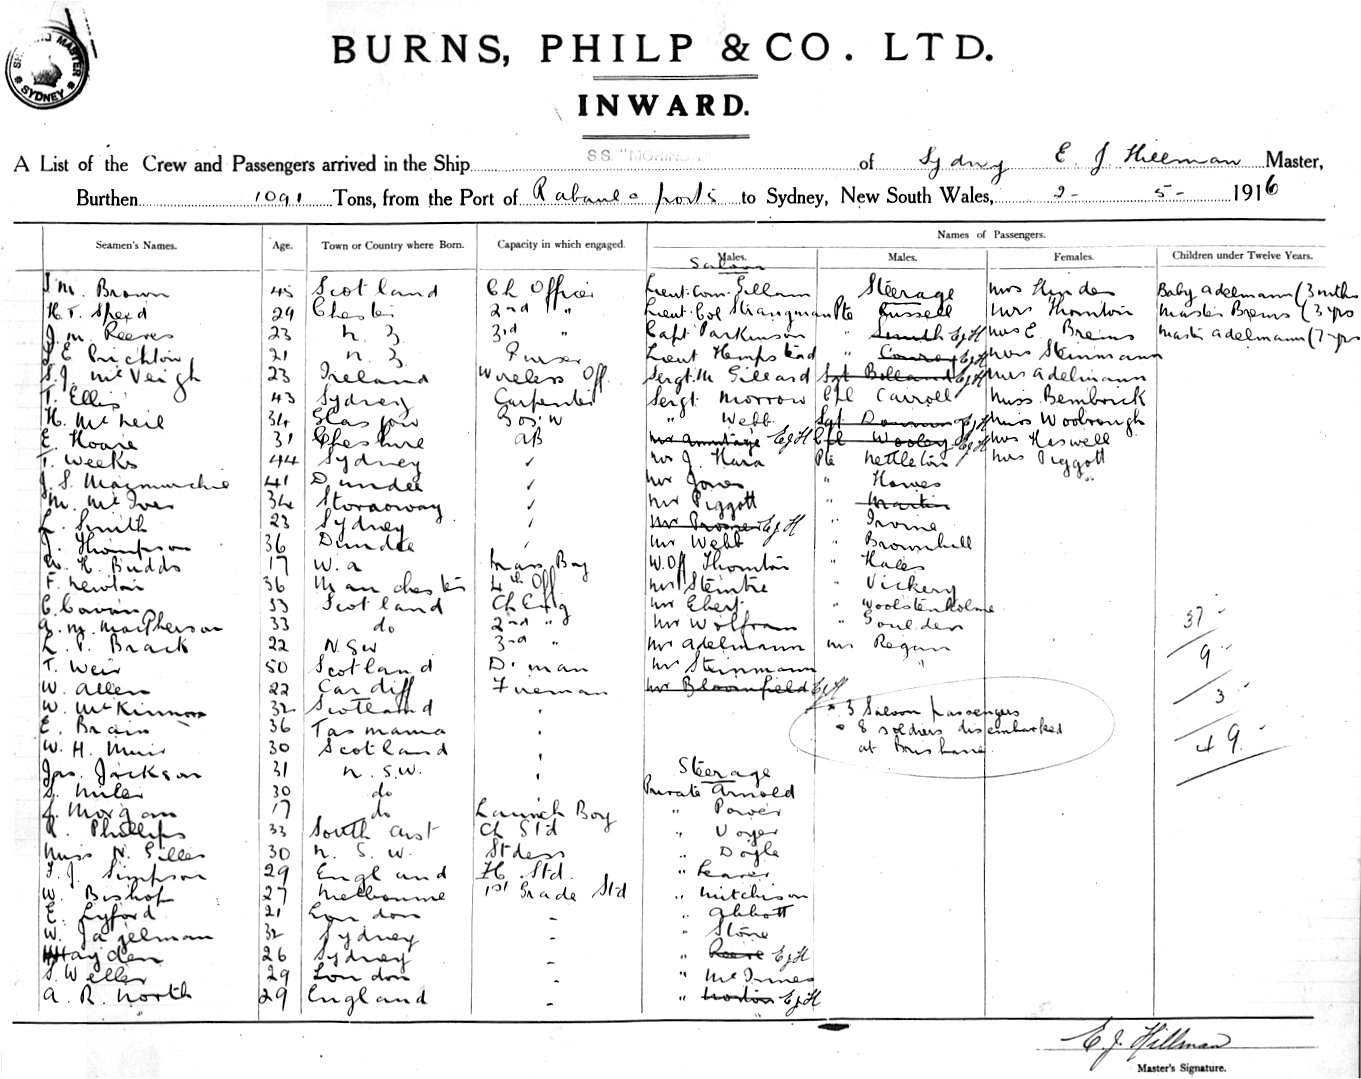 SYDNEY
BURNS, PHILP & CO. LTD.
INWARD.
A List of the Crew and Passengers arrived in the Ship S.S. "MORINDA" of Sydney E J Hillman Master,
Burthen 1091 Tons, from the Port of Rabaul & ports to Sydney, New South Wales, 2 - 5 - 1916
Names of Passengers.
Seamen's Names. Age. Town or Country where Born. Capacity in which engaged. Males. Males. Females. Children under Twelve Years.
Saloon
Brown 45 Scotland Ch Officer Lieut. Com. Gillam Steerage Mrs Baby Adelmann (3 mths
H. T. Speed 29 Chester 2nd " Lieut. Col Strangman Pte Russell Mrs Thornton Master Brems (3 yrs
J. M. Reeves 23 N. Z 3rd " Capt Parkinson " Smith EJH Mrs E Brems Master Adelmann (7 yrs
E Crichton 21 N. Z Purser Lieut Hempstead " Conroy EJH Mrs Steinmann
S. J. McVeigh 23 Ireland Wireless Off. Sergt. M Gillard Sgt Bolland EJH Mrs Adelmann
T. Ellis 43 Sydney Carpenter Sergt Morrow Cpl Carroll Miss Bembrick
H. McNeil 34 Glasgow Bos'n " Webb Sgt EJH Miss Woobrough
E. Hoare 31 Cheshire AB Mr Armitage EJH Cpl Wooley EJH Mrs Haswell
T. Weeks 44 Sydney Mr J. Hara Pte Nettleton Mrs Piggott
J. S. 41 Dundee Mr Jones " Hawes
M. McIver 34 Stornoway Mr Piggott " Martin
L. Smith 23 Sydney Mr EJH " Irvine
J. Thompson 36 Dundee Mr Webb " Brownhill
W. H. Budds 17 W. A Mess Boy W. Off Thornton " Hales
F. Newton 36 Manchester 4th Off Mr " Vickery
C. Cavan 33 Scotland Ch Eng Mr Ebert " Woolstenholme 37
A. M. MacPherson 33 do 2nd " Mr Wolfram " Goulden
L. V. Brack 22 N. SW 3rd " Mr Adelmann Mr Regan 9
T. Weir 50 Scotland D'man Mr Steinmann
W. Allen 22 Cardiff Fireman Mr Bloomfield EJH 3
W. McKinnon 32 Scotland * 3 Saloon passengers
E. Brain 36 Tasmania * 8 soldiers disembarked 49
W. H. Muir 30 Scotland at Brisbane.
Jas. Jackson 31 N. S.W. Steerage
S. Miler 30 do Private Arnold
L. Morgan 17 do Launch Boy " Power
R. Phillips 33 South Aust Ch Std " Voyer
Miss N. Gilles 30 N. S. W. Stdess " Doyle
F. J. Simpson 29 England H. Std.
W. Bishop 27 Melbourne 1st Grade Std " Mitchison
E. Lyford 21 London " Abbott
W. Jagelman 32 Sydney " Stone
Hayden 26 Sydney " EJH
S. Weller 29 London " McInnes
A. R. North 29 England " Norton EJH
E. J. Hillman
Master's Signature.